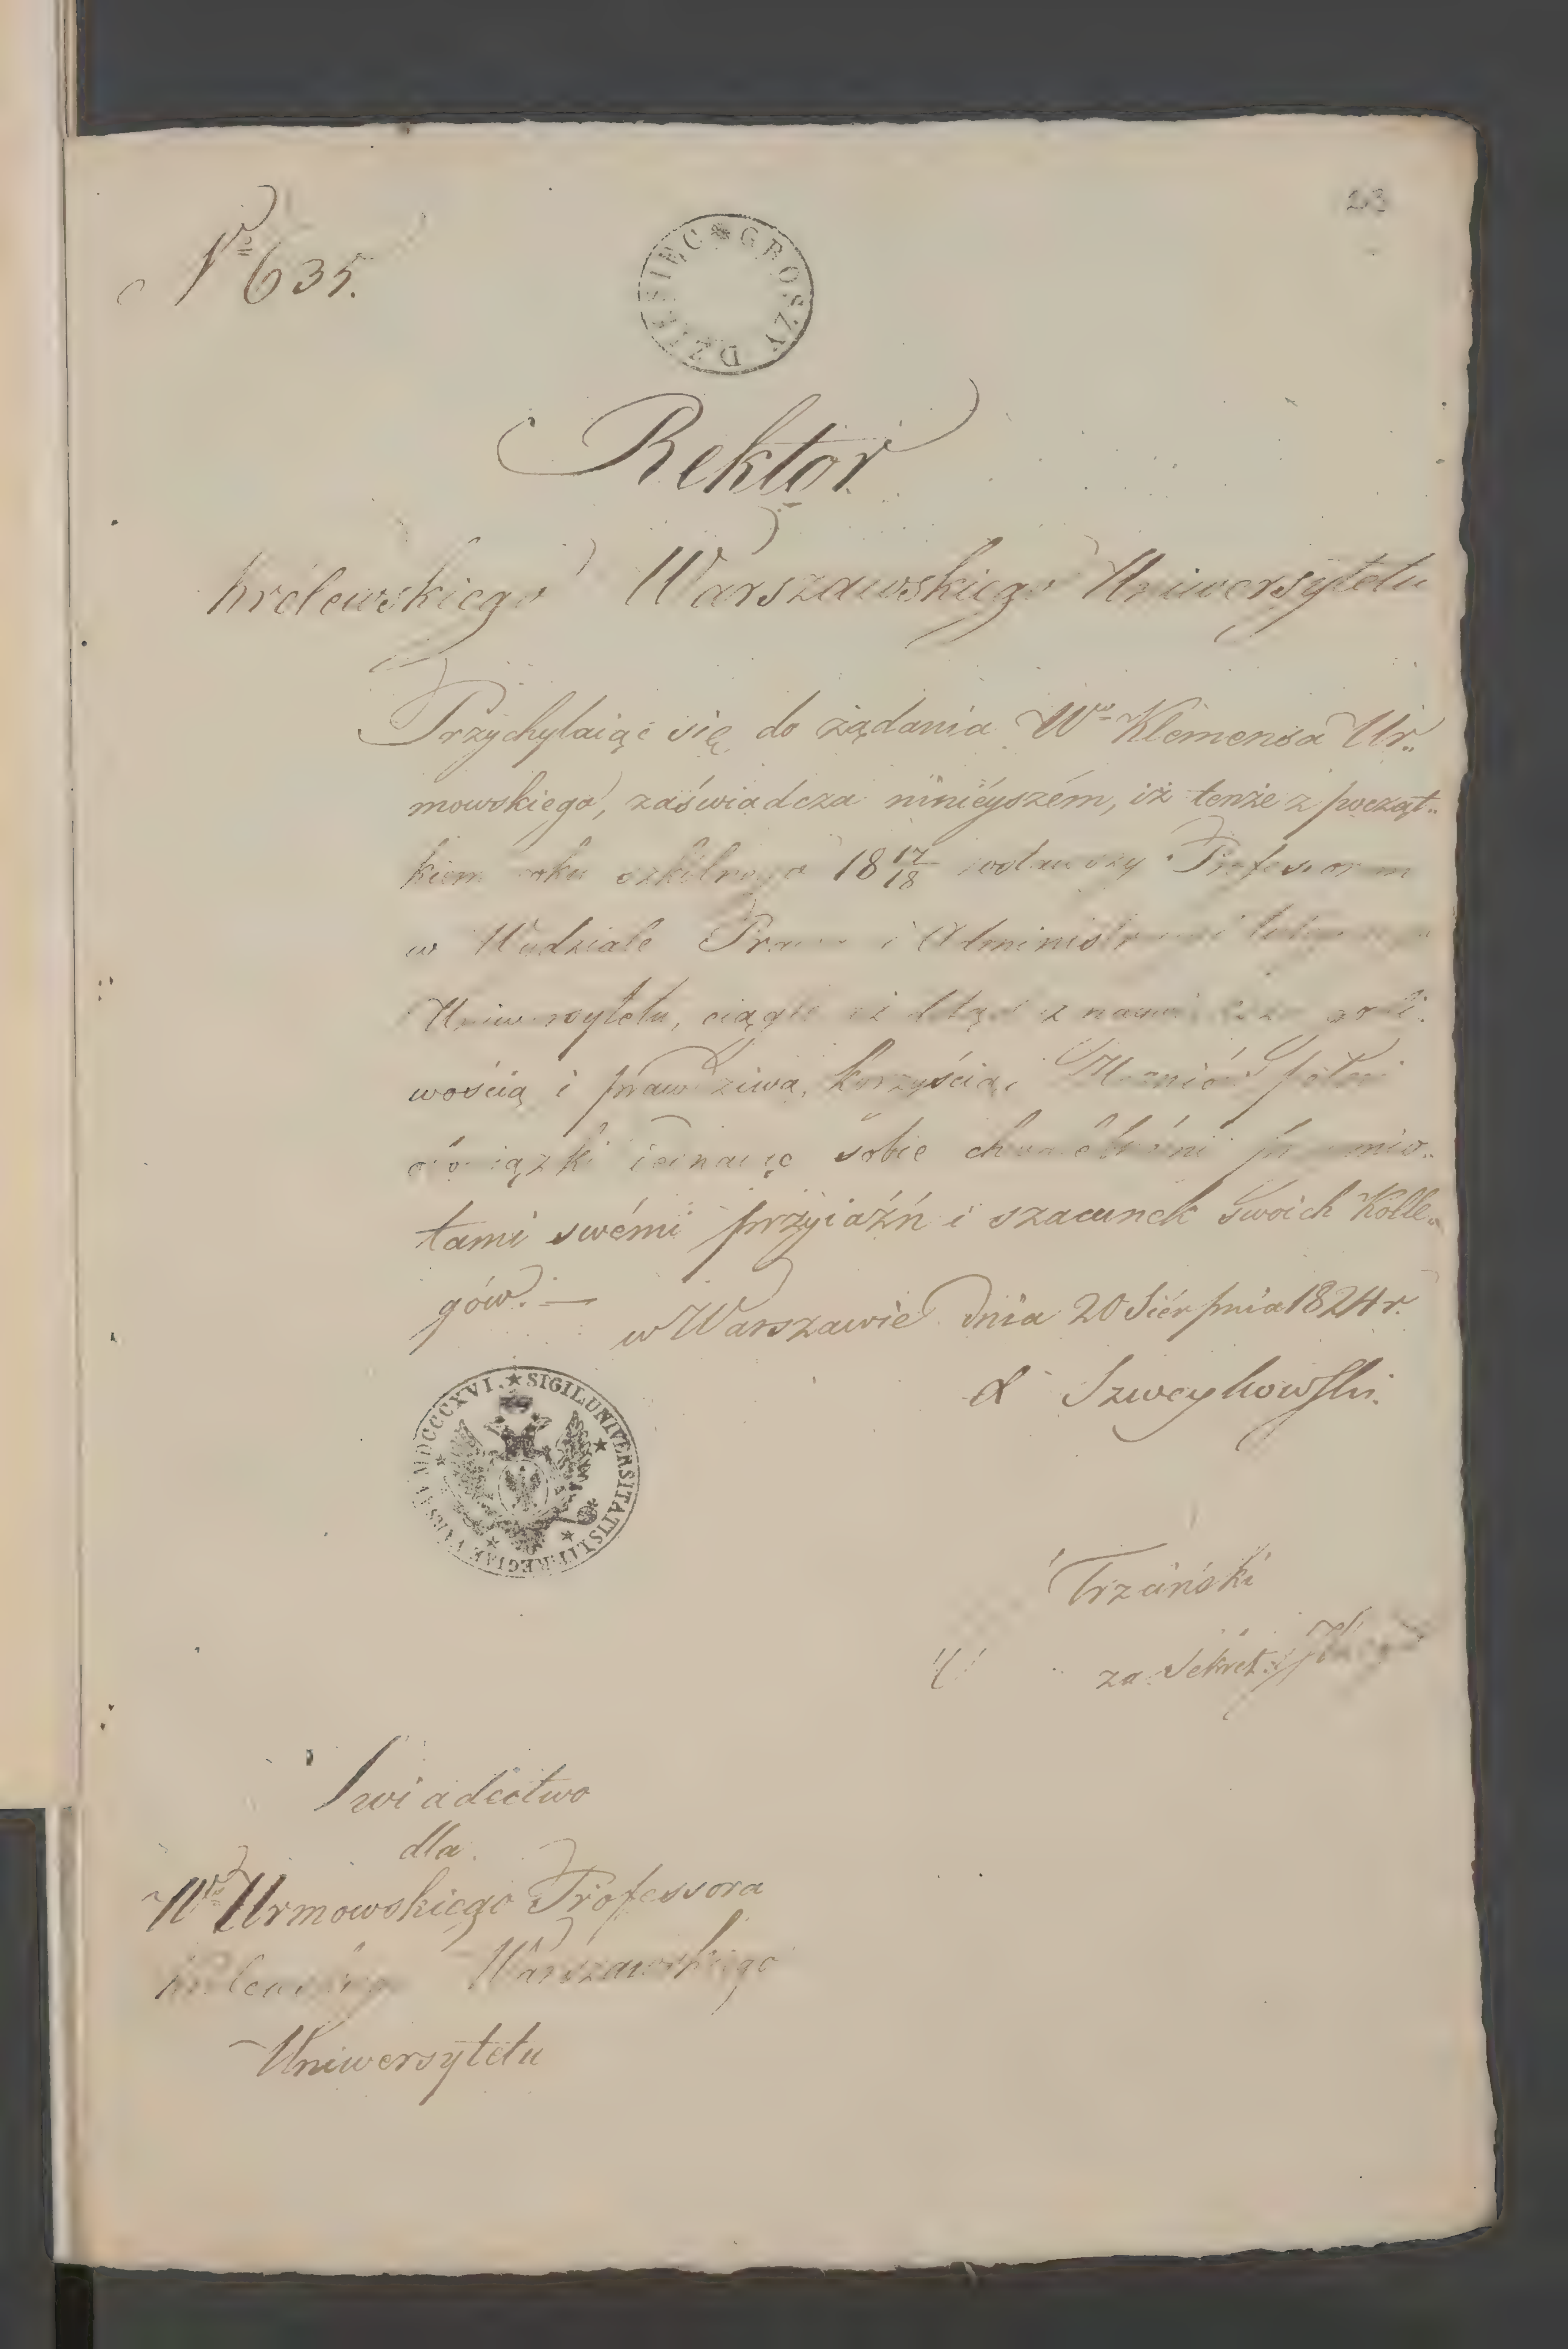 23
№ 635.
DZIESIĘC GROSZY
Rektor
Królewskiego Warszawskiego Uniwersytetu
Przychylaiąc się do żądania Wo Klemensa Ur„
mowskiego, zaświadcza ninieyszém, iż tenże z począt„
kiem roku szkolnego 18 17/18 zostawszy Professorem
w Wydziale Prawa i Administracyi
Uniwersytetu, ciągle z
wością i prawdziwą korzyścią Uczniów pełni
obowiązki iednaiąc sobie chwalebnémi przymio„
tami swémi przyiaźń i szacunek swoich Kolle„
gów. —
w Warszawie dnia 20 Sierpnia 1824 r.
Szweykowski.
SIGIL. UNIVERSITATIS LIT. REGIAE VARSAV. MDCCCXVI.
Trzciński
za Sekret:
Swiadectwo
dla
Wo Urmowskiego Professora
Królewskiego Warszawskiego
Uniwersytetu